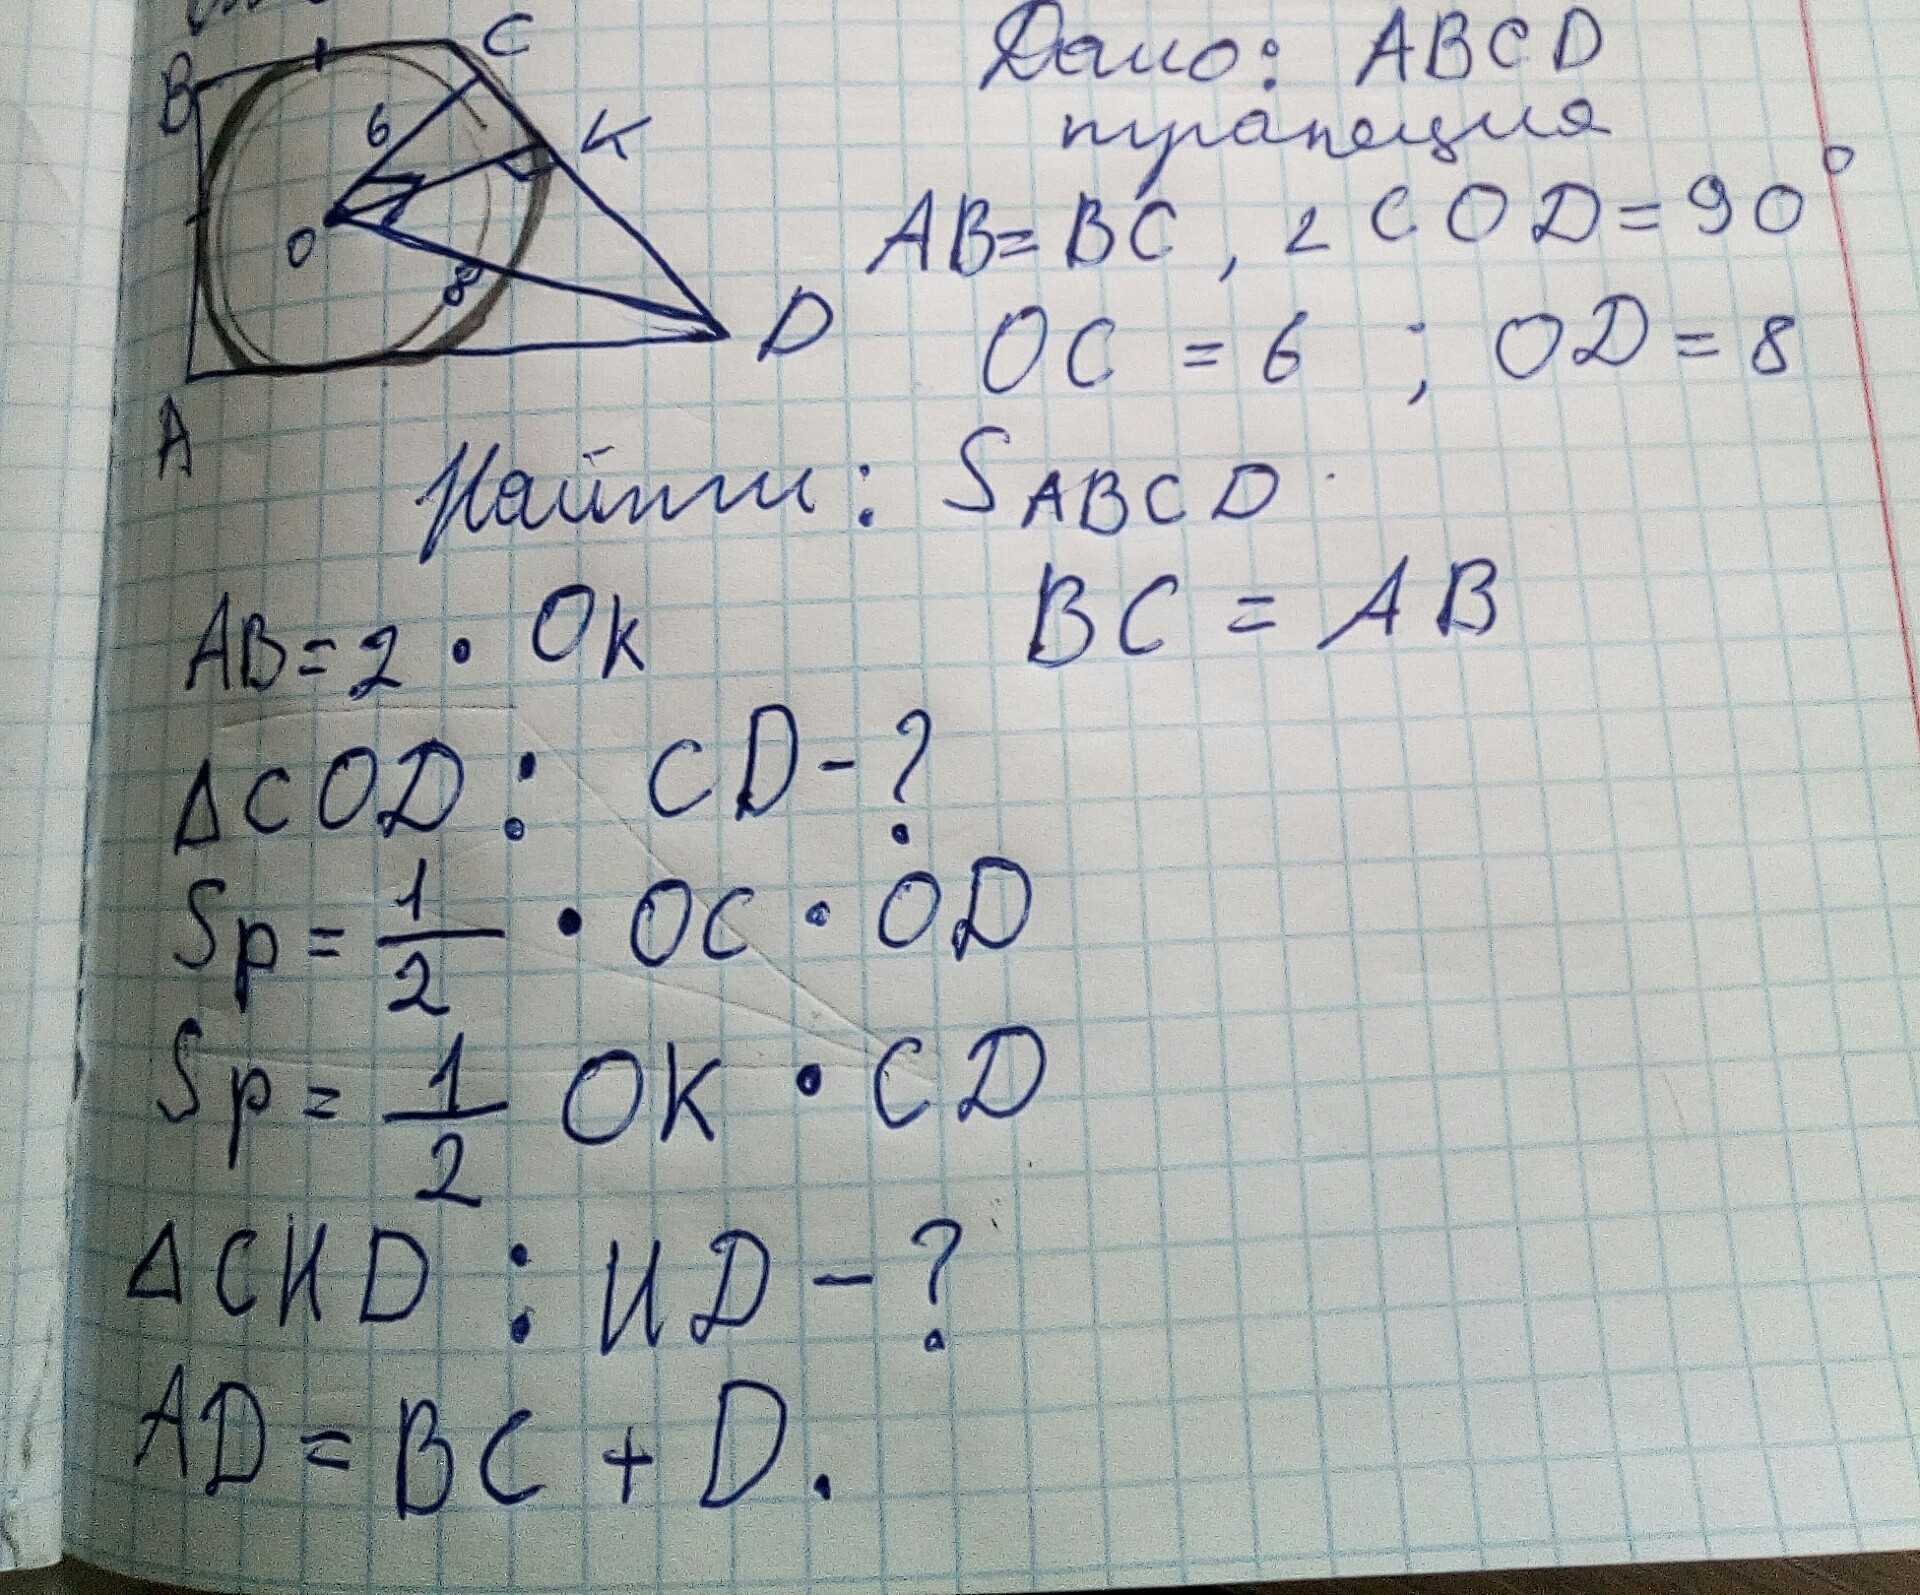 B
C
6
K
O
8
D
A
Дано: ABCD
трапеция
AB=BC, ∠COD=90°
OC = 6 ; OD = 8
Найти: SABCD
AB=2 • OK
BC = AB
ΔCOD : CD-?
Sp = 1/2 • OC • OD
Sp = 1/2 OK • CD
ΔCHD : HD-?
AD = BC + D.